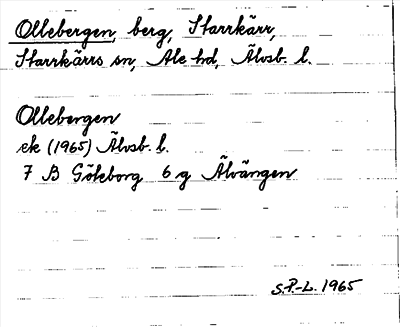 Ollebergen, berg, Starrkärr,
Starrkärrs sn, Ale hd, Älvsb. l.
Ollebergen
ek (1965) Älvsb. l.
7 B Göteborg 6 g Älvängen
S.P.-L. 1965